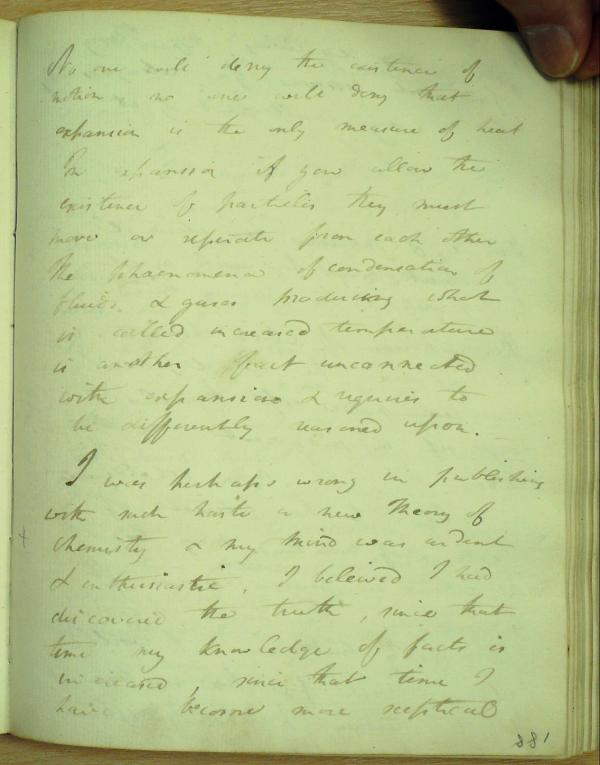 No one will deny the existence of
motion, no one will deny that
expansion is the only measure of heat
In expansion if you allow the
existence of particles they must
move or seperate from each other
The phaenomena of condensation of
fluids & gases producing what
is called increased temperature
is another fact unconnected
with expansion & requires to
be differently reasoned upon.
I was perhaps wrong in publishing
with such haste a new Theory of
chemistry & my mind was ardent
& enthusiastic. I beleived I had
discovered the truth, since that
time my knowledge of facts is
increased, since that time I
have become more sceptical
881